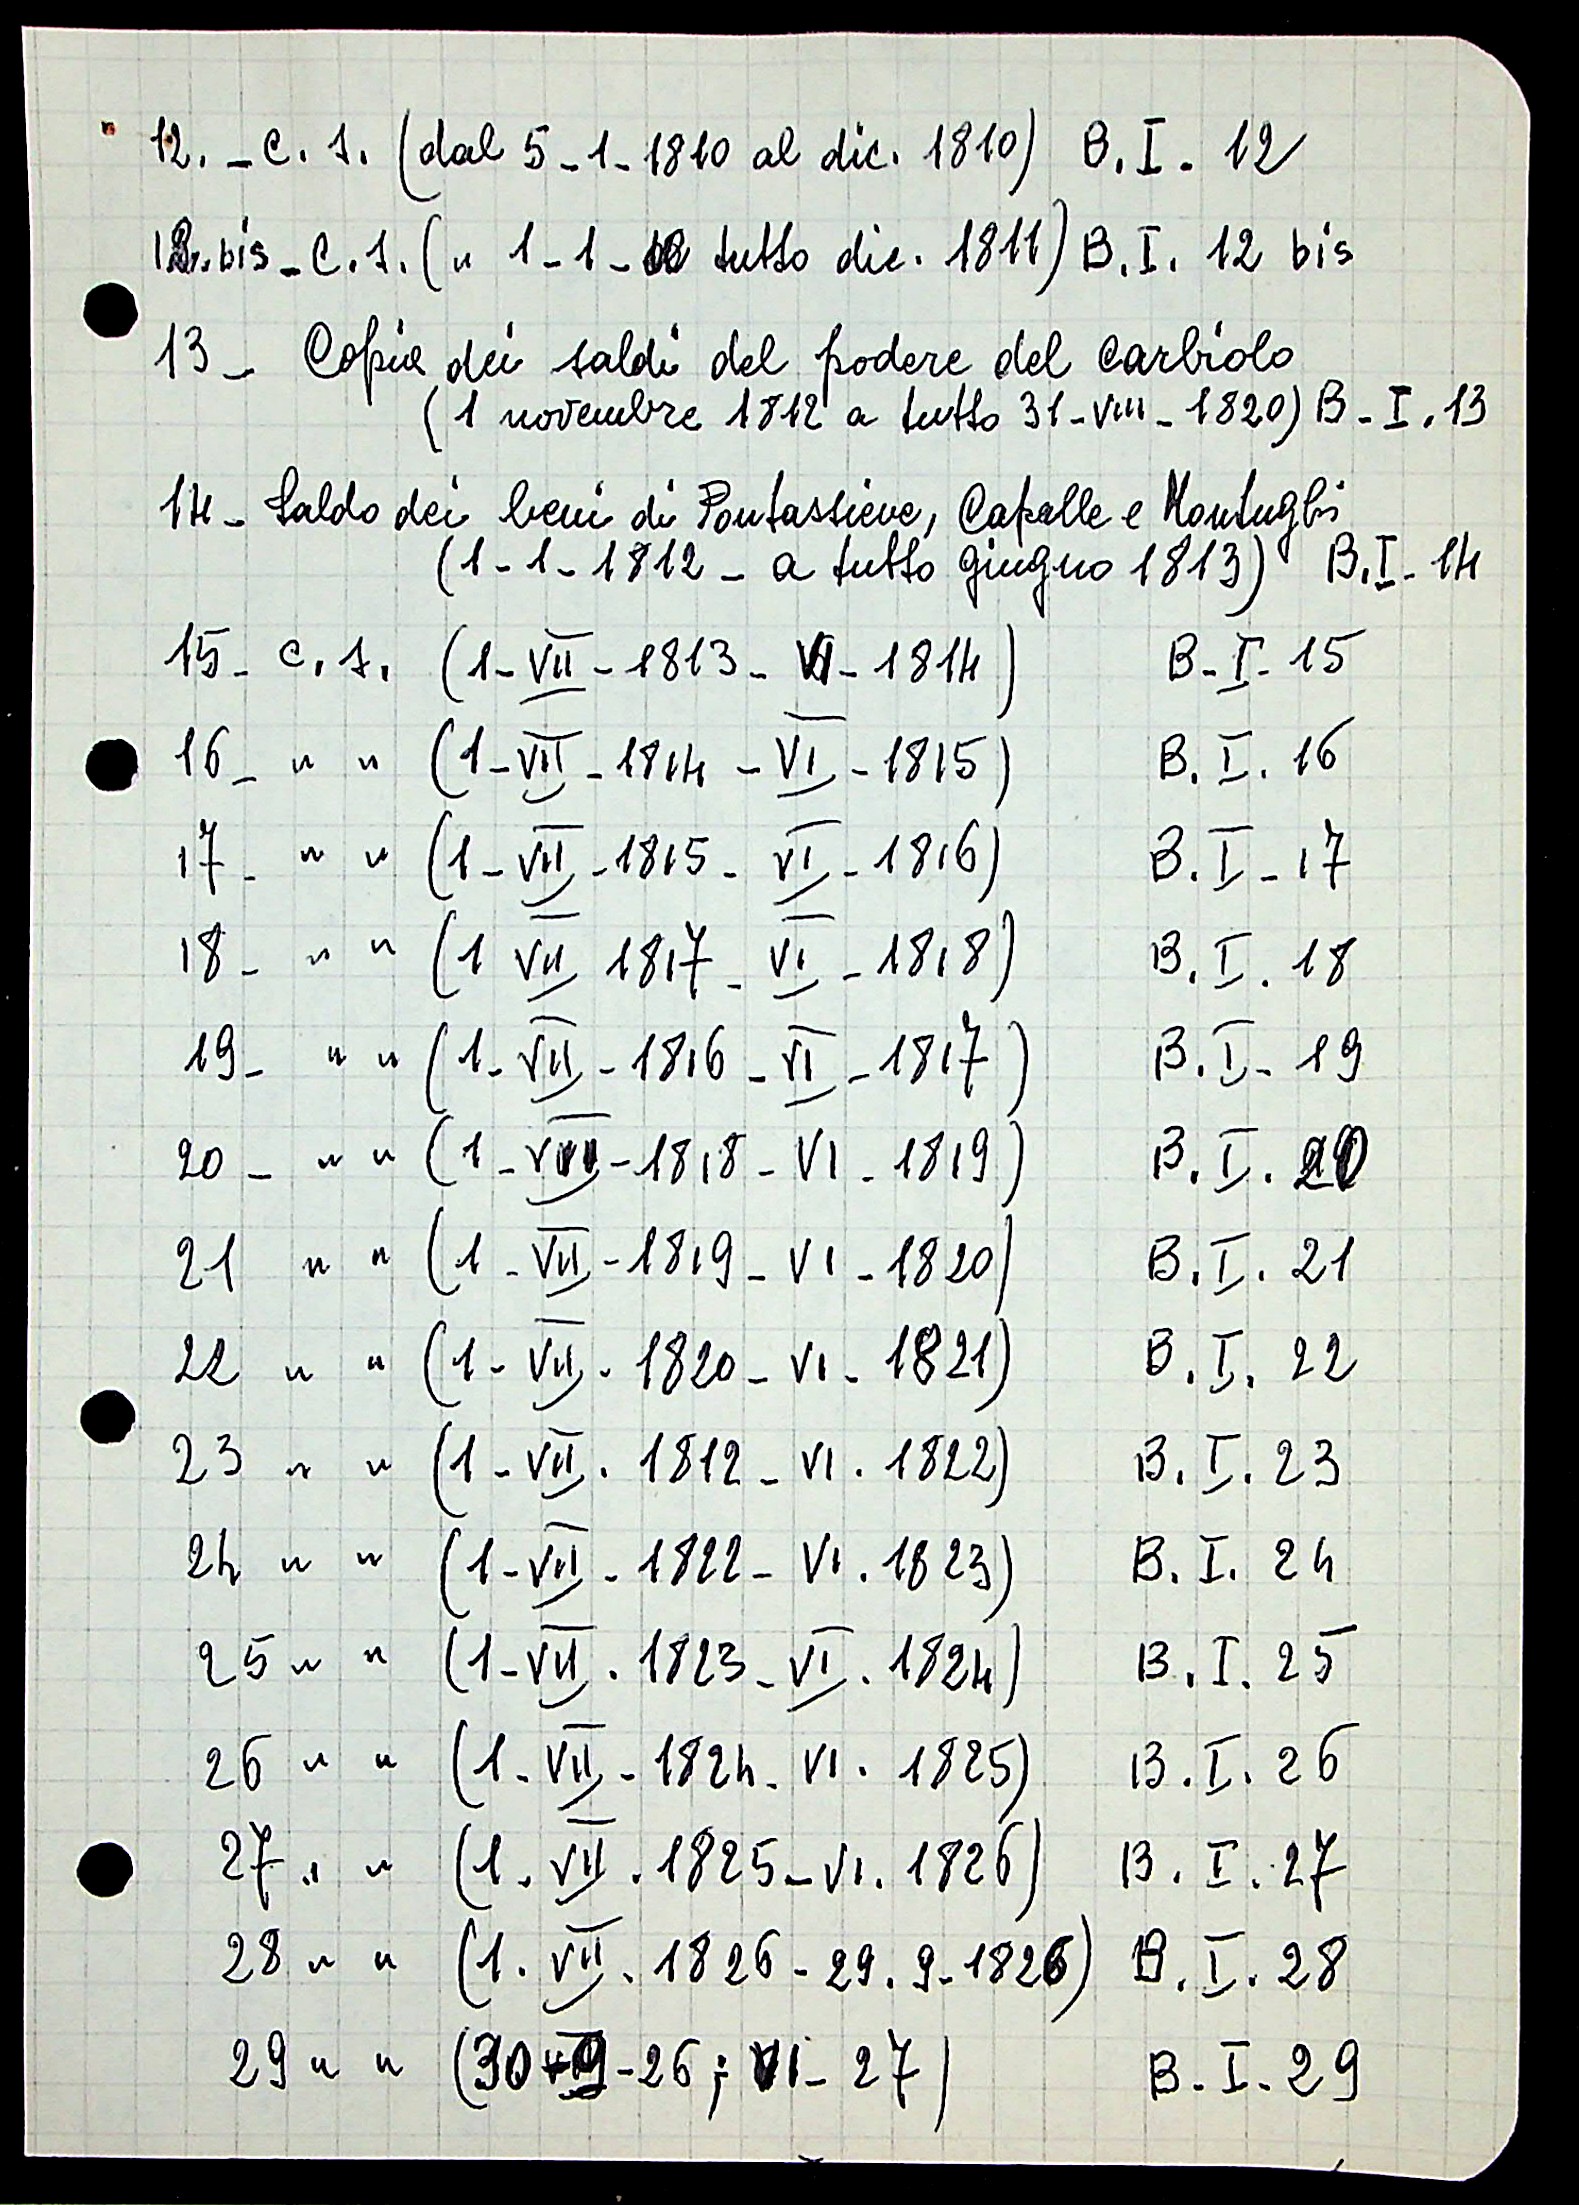 12. - C. s. (dal 5-1-1810 al dic. 1810) B.I- 12
12.bis - C. s. (" 1-1- tutto dic. 1811) B.I. 12 bis
13- Copia dei saldi del podere del Carbiolo
(1 novembre 1812 a tutto 31-VIII-1820) B-I.13
14- Saldo dei beni di Pontassieve, Capalle e Montughi
(1-1-1812 - a tutto giugno 1813) B.I-14
15- C. s. (1-VII-1813- VI-1814) B-I-15
16- " " (1-VII-1814-VI-1815) B.I.16
17- " " (1-VII-1815-VI-1816) B.I-17
18- " " (1 VII 1817-VI-1818) B.I.18
19- " " (1-VII-1816-VI-1817) B.I-19
20- " " (1-VII-1818-VI-1819) B.I.20
21 " " (1-VII-1819-VI-1820) B.I.21
22 " " (1-VII-1820-VI-1821) B.I.22
23 " " (1-VII.1812-VI.1822) B.I.23
24 " " (1-VII-1822-VI.1823) B.I.24
25 " " (1-VII.1823-VI.1824) B.I.25
26 " " (1-VII-1824-VI.1825) B.I.26
27 " " (1.VII.1825-VI.1826) B.I.27
28 " " (1.VII.1826-29.9-1826) B.I.28
29 " " (30-9-26; VI-27) B-I-29